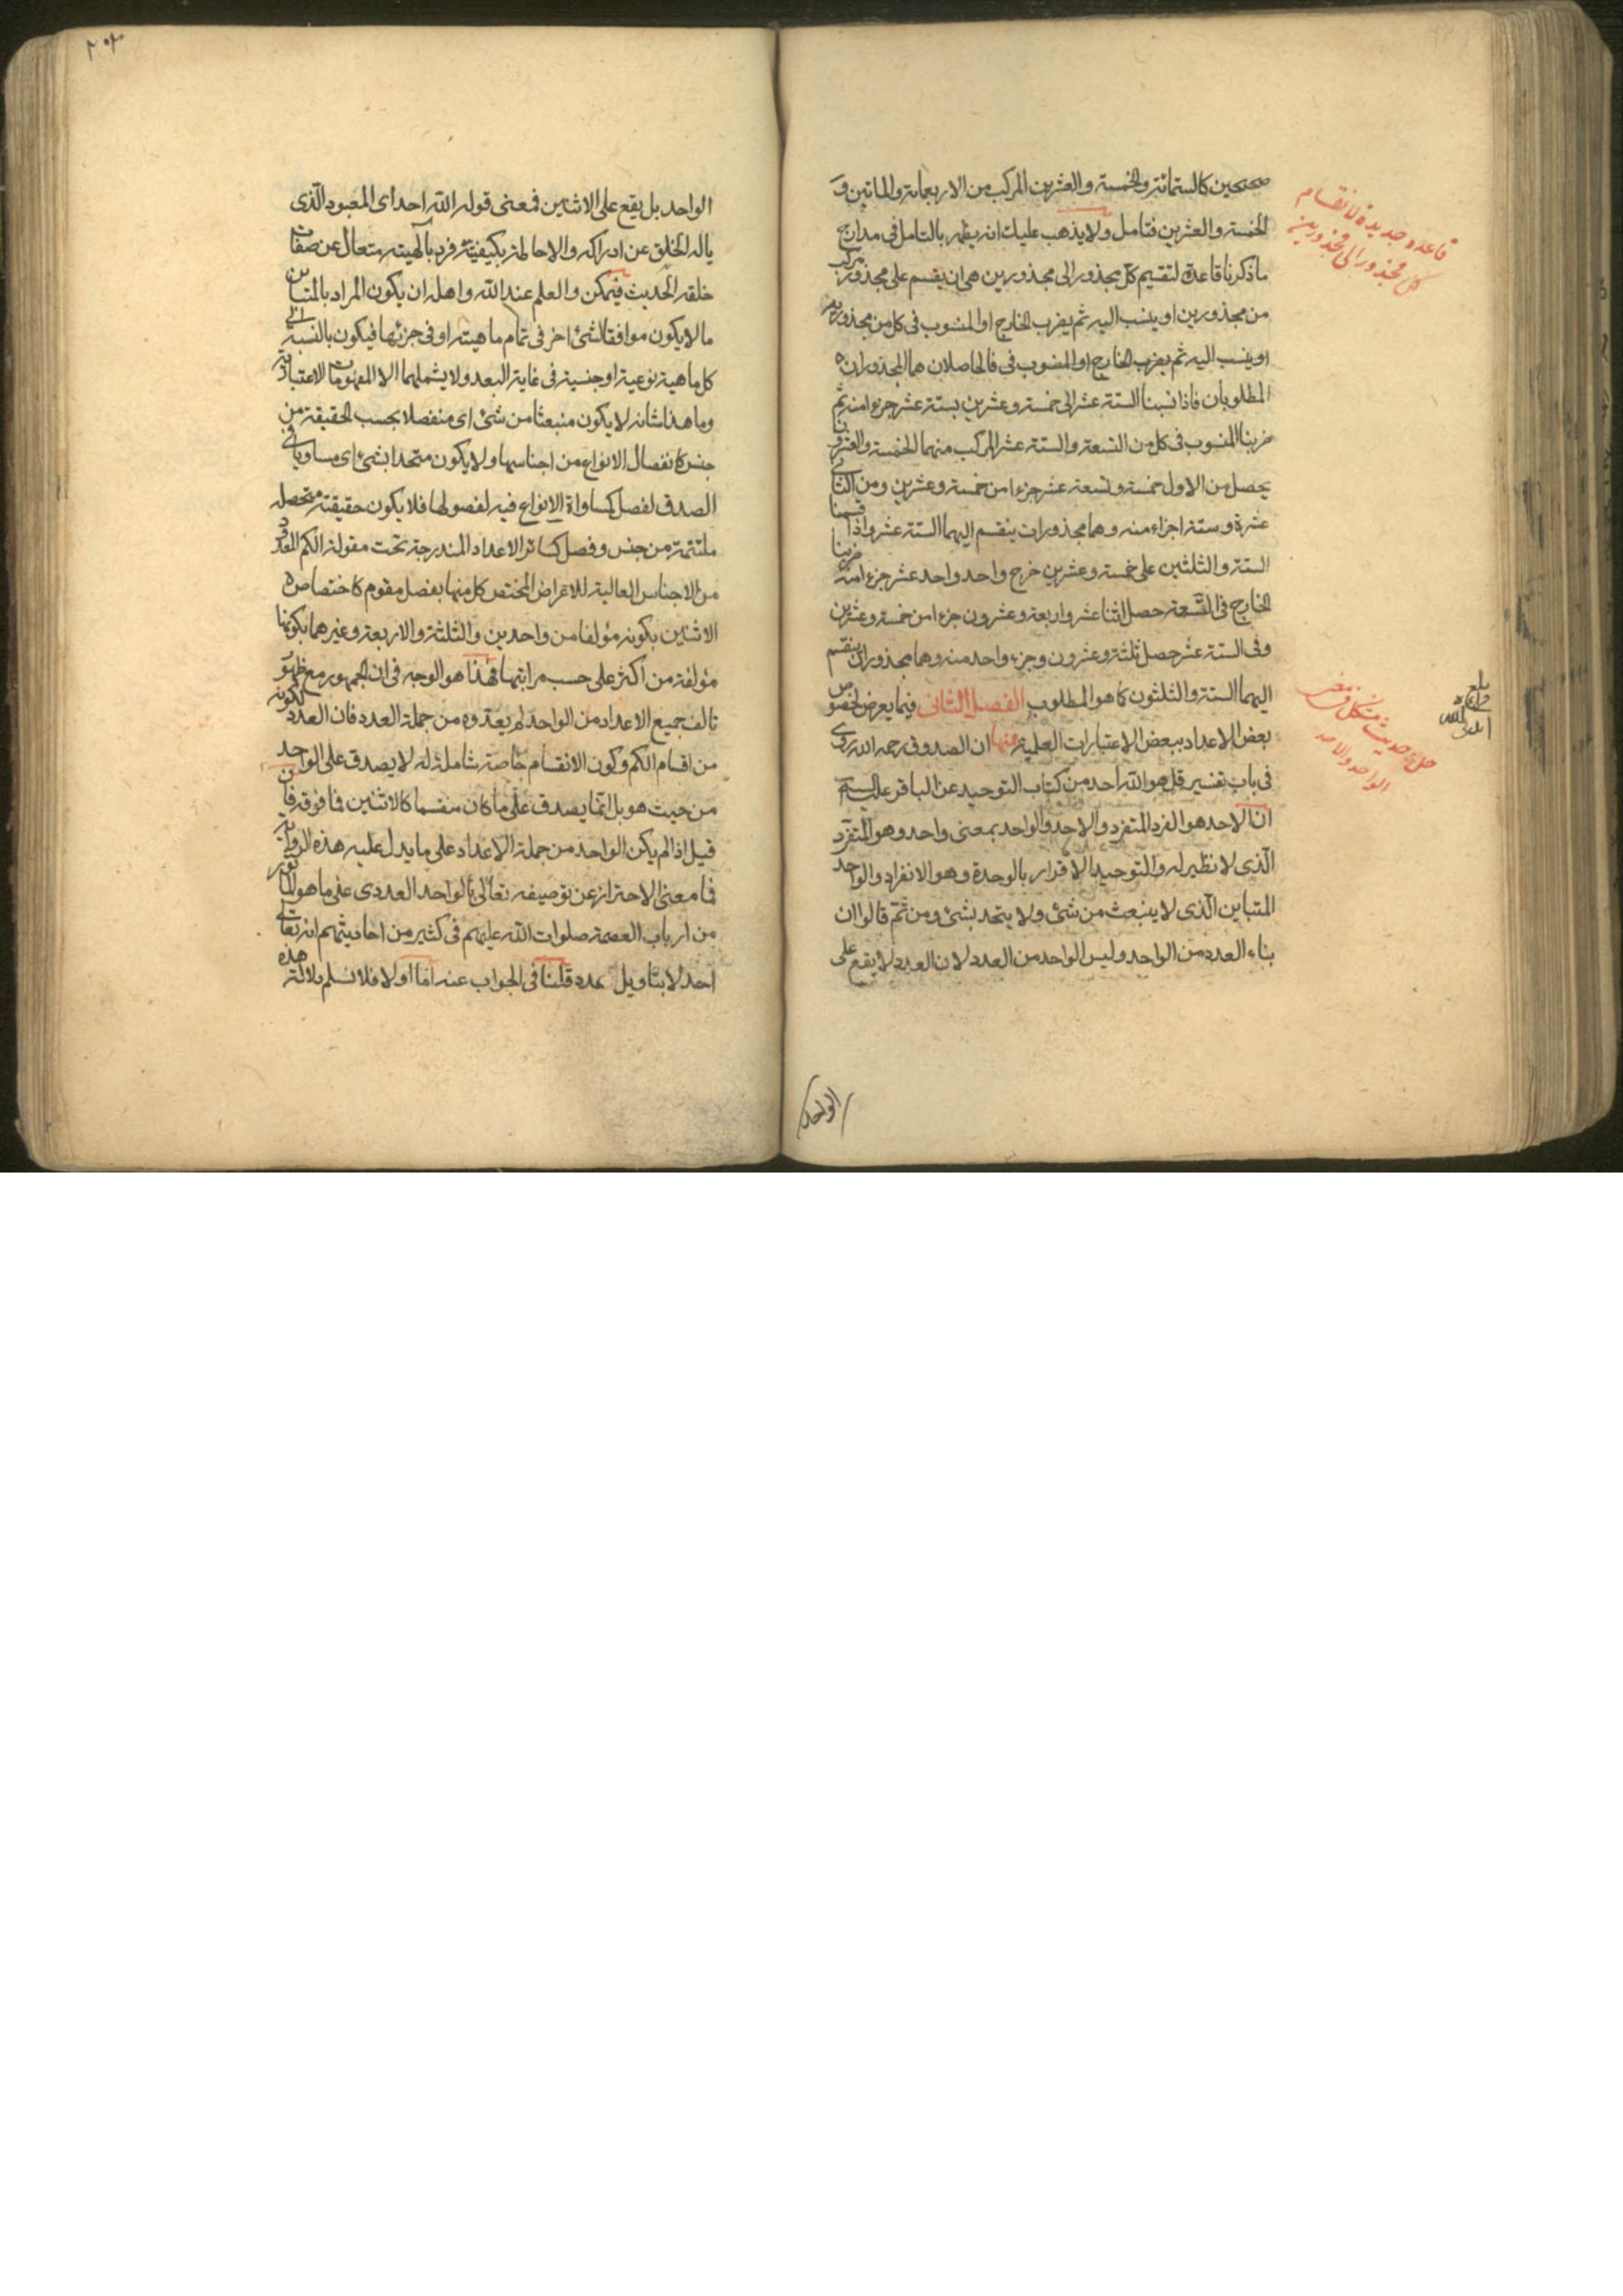 صحيحين كالستمائة والخمسة والعشرين المركب من الاربعمائة والمائتين و
الخمسة والعشرين فتامل ولا يذهب عليك انه يظهر بالتامل فى مدارج
ما ذكرنا قاعدة لتقسيم كل مجذور الى مجذورين هى ان يقسم على مجذور مركب
من مجذورين او ينسب اليه ثم يضرب الخارج او المنسوب فى كل من مجذوريه
او ينسب اليه ثم يضرب الخارج او المنسوب فى فالحاصلان هما المجذوران
المطلوبان فاذا نسبنا الستة عشر الى خمسة وعشرين بستة عشر جزءا منه ثم
ضربنا المنسوب فى كل من التسعة والستة عشر المركب منهما الخمسة والعشرون
يحصل من الاول خمسة وتسعة عشر جزءا من خمسة وعشرين ومن الثانى
عشرة وستة اجزاء منه وهما مجذوران ينقسم اليهما الستة عشر واذا قسمنا
الستة والثلثين على خمسة وعشرين خرج واحد واحد عشر جزءا منه ضربنا
الخارج فى التسعة حصل اثنا عشر واربعة وعشرون جزءا من خمسة وعشرين
وفى الستة عشر حصل ثلثة وعشرون وجزء واحد منه وهما مجذوران ينقسم
اليهما الستة والثلثون كما هو المطلوب الفصل الثانى فيما يعرض لخصوص
بعض الاعداد ببعض الاعتبارات العلمية منها ان الصدوق رحمه الله روى
فى باب تفسير قل هو الله احد من كتاب التوحيد عن الباقر عليه السلم
ان الاحد هو الفرد المتفرد والاحد والواحد بمعنى واحد وهو المتفرد
الذى لا نظير له والتوحيد الاقرار بالوحدة وهو الانفراد والواحد
المتباين الذى لا ينبعث من شئ ولا يتحد بشئ ومن ثم قالوا ان
بناء العدد من الواحد وليس الواحد من العدد لان العدد لا يقع على
الواحد
قاعده جديدة لانقسام
كل مجذور الى مجذورين
حل حديث مشكل فى
الواحد والاحد
بلغ
الواحد بل يقع على الاثنين فمعنى قوله الله احد اى المعبود الذى
ياله الخلق عن ادراكه والاحاطة بكيفيته فرد بالهيته متعال عن صفات
خلقه الحديث فيمكن والعلم عند الله واهله ان يكون المراد بالمتباين
ما لا يكون موافقا لشئ اخر فى تمام ماهيته او فى جزئها فيكون بالنسبة الى
كل ماهية نوعية او جنسية فى غاية البعد ولا يشملهما الا المفهومات الاعتبارية
وما هذا شانه لا يكون منبعثا من شئ اى منفصلا بحسب الحقيقة من
جنس كانفصال الانواع من اجناسها ولا يكون متحدا بشئ اى مساويا فى
الصدق لفصل كمساواة الانواع فيه لفصولها فلا يكون حقيقته متحصلة
ملتئمة من جنس وفصل كسائر الاعداد المندرجة تحت مقولة الكم المعدود
من الاجناس العالية للاعراض المختص كل منها بفصل مقوم كاختصاص
الاثنين بكونه مؤلفا من واحدين والثلثة والاربعة وغيرهما بكونها
مؤلفة من اكثر على حسب مراتبها فهذا هو الوجه فى ان الجمهور مع ظهور
تالف جميع الاعداد من الواحد لم يعدوه من جملة العدد فان العدد لكونه
من اقسام الكم وكون الانقسام خاصة شاملة له لا يصدق على الواحد
من حيث هو بل انما يصدق على ما كان منقسما كالاثنين فما فوقه فان
قيل اذا لم يكن الواحد من جملة الاعداد على ما يدل عليه هذه الرواية
فما معنى الاحتراز عن توصيفه تعالى بالواحد العددى على ما هو المأثور
من ارباب العصمة صلوات الله عليهم فى كثير من احاديثهم انه تعالى
احد لا بتاويل عدد قلنا فى الجواب عنه اما اولا فلا نسلم دلالة هذه